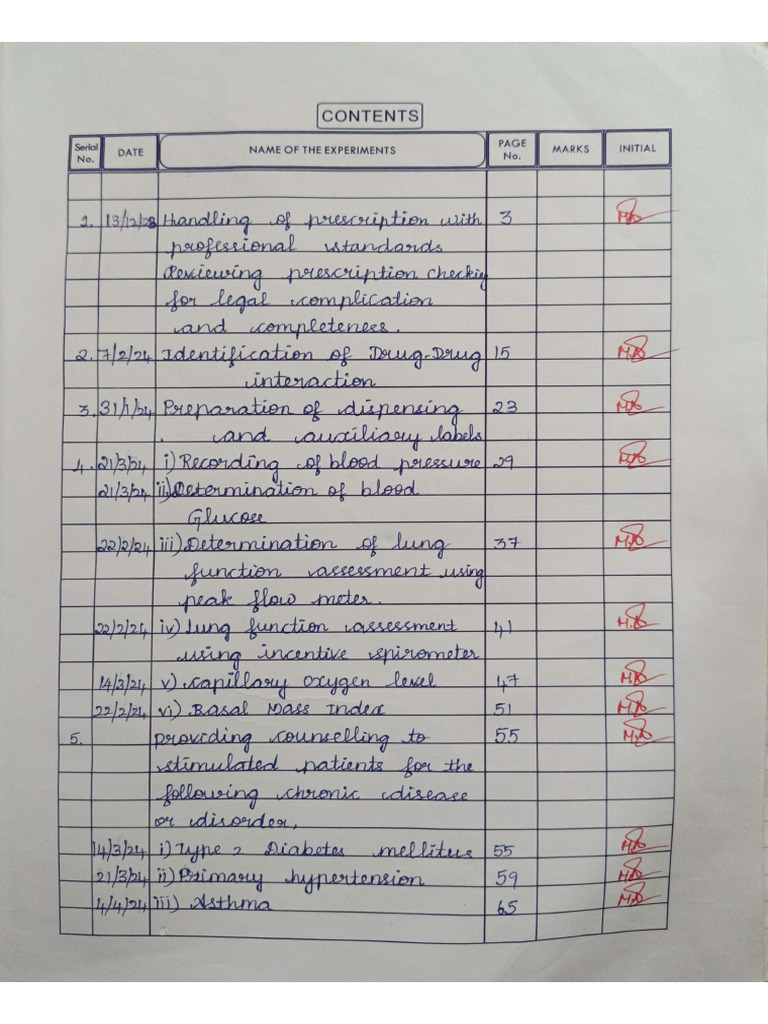 CONTENTS
Serial No. DATE NAME OF THE EXPERIMENTS PAGE No. MARKS INITIAL
1. 13/12/23 Handling of prescription with 3
professional standards
Reviewing prescription checking
for legal complication
and completeness.
2. 7/2/24 Identification of Drug-Drug 15
interaction
3. 31/1/24 Preparation of dispensing 23
and auxiliary labels
4. 21/3/24 i) Recording of blood pressure 29
21/3/24 ii) Determination of blood
Glucose
22/2/24 iii) Determination of lung 37
function assessment using
peak flow meter.
22/2/24 iv) Lung function assessment 41
using incentive spirometer
14/3/24 v) capillary oxygen level 47
22/2/24 vi) Basal Mass Index 51
5. providing counselling to 55
stimulated patients for the
following chronic disease
or disorder,
14/3/24 i) Type 2 Diabetes mellitus 55
21/3/24 ii) Primary hypertension 59
4/4/24 iii) Asthma 65